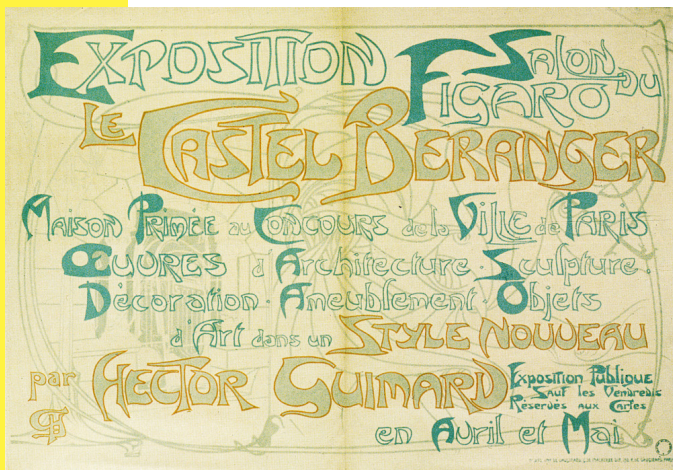 EXPOSITION SALON DU FIGARO
LE CASTEL BERANGER
MAISON PRIMÉE au CONCOURS de la VILLE de PARIS
ŒUVRES d'Architecture. Sculpture.
Décoration. Ameublement. Objets
d'Art dans un STYLE NOUVEAU
par HECTOR GUIMARD
Exposition Publique
Sauf les Vendredis
Réservés aux Cartes
en Avril et Mai